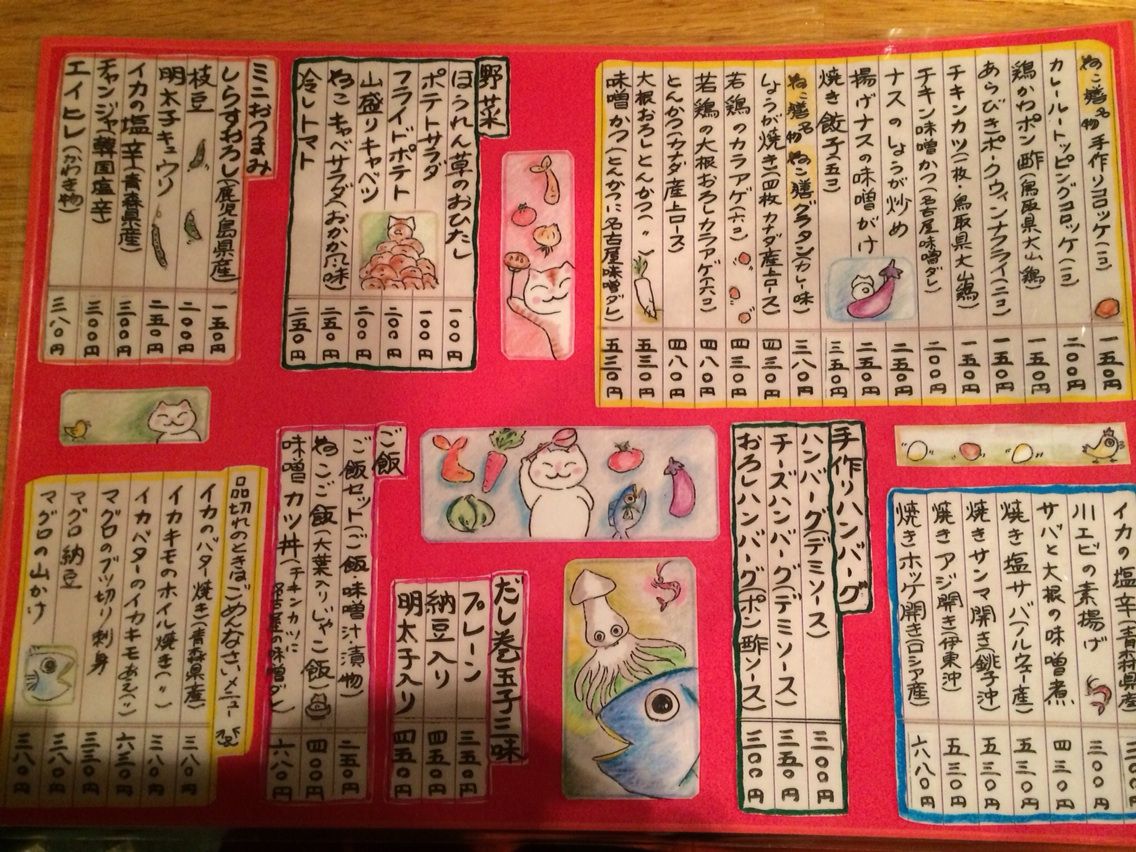 ねこ膳名物 手作りコロッケ(二コ) 一五〇円
カレールートッピングコロッケ(二コ) 二〇〇円
鶏かわポン酢(鳥取県大山鶏) 一五〇円
あらびきポークウィンナフライ(二コ) 一五〇円
チキンカツ(一枚・鳥取県大山鶏) 一五〇円
チキン味噌かつ(名古屋味噌ダレ) 二〇〇円
ナスのしょうが炒め 二五〇円
揚げナスの味噌がけ 二五〇円
焼き餃子(五コ) 三五〇円
ねこ膳名物 ねこ膳グラタン(カレー味) 三八〇円
しょうが焼き(四枚カナダ産上ロース) 四三〇円
若鶏のカラアゲ(六コ) 四三〇円
若鶏の大根おろしカラアゲ(六コ) 四八〇円
とんかつ(カナダ産上ロース) 四八〇円
大根おろしとんかつ(〃) 五三〇円
味噌かつ(とんかつに名古屋味噌ダレ) 五三〇円
野菜
ほうれん草のおひたし 一〇〇円
ポテトサラダ 一〇〇円
フライドポテト 二〇〇円
山盛りキャベツ 二〇〇円
ねこキャベサラダ(おかか風味) 二五〇円
冷しトマト 二五〇円
ミニおつまみ
しらすおろし(鹿児島県産) 一五〇円
枝豆 二〇〇円
明太子キュウリ 二五〇円
イカの塩辛(青森県産) 三〇〇円
チャンジャ韓国塩辛 三〇〇円
エイヒレ(かわき物) 三八〇円
イカの塩辛(青森県産) 三〇〇円
川エビの素揚げ 三〇〇円
サバと大根の味噌煮 四三〇円
焼き塩サバ(ノルウェー産) 五三〇円
焼きサンマ開き(銚子沖) 五三〇円
焼きアジ開き(伊東沖) 五三〇円
焼きホッケ開き(ロシア産) 六八〇円
手作りハンバーグ
ハンバーグ(デミソース) 三〇〇円
チーズハンバーグ(デミソース) 三五〇円
おろしハンバーグ(ポン酢ソース) 三〇〇円
だし巻玉子三味
プレーン 三五〇円
納豆入り 四五〇円
明太子入り 四五〇円
ご飯
ご飯セット(ご飯味噌汁漬物) 二五〇円
ねこご飯(大葉入りじゃこ飯) 四〇〇円
味噌カツ丼(チキンカツに名古屋の味噌ダレ) 六八〇円
品切れのときはごめんなさいメニュー
イカのバター焼き(青森県産) 三八〇円
イカキモのホイル焼き(〃) 三八〇円
イカバターのイカキモあえ(〃) 六三〇円
マグロのブツ切り刺身 三三〇円
マグロ納豆 三八〇円
マグロの山かけ 三八〇円